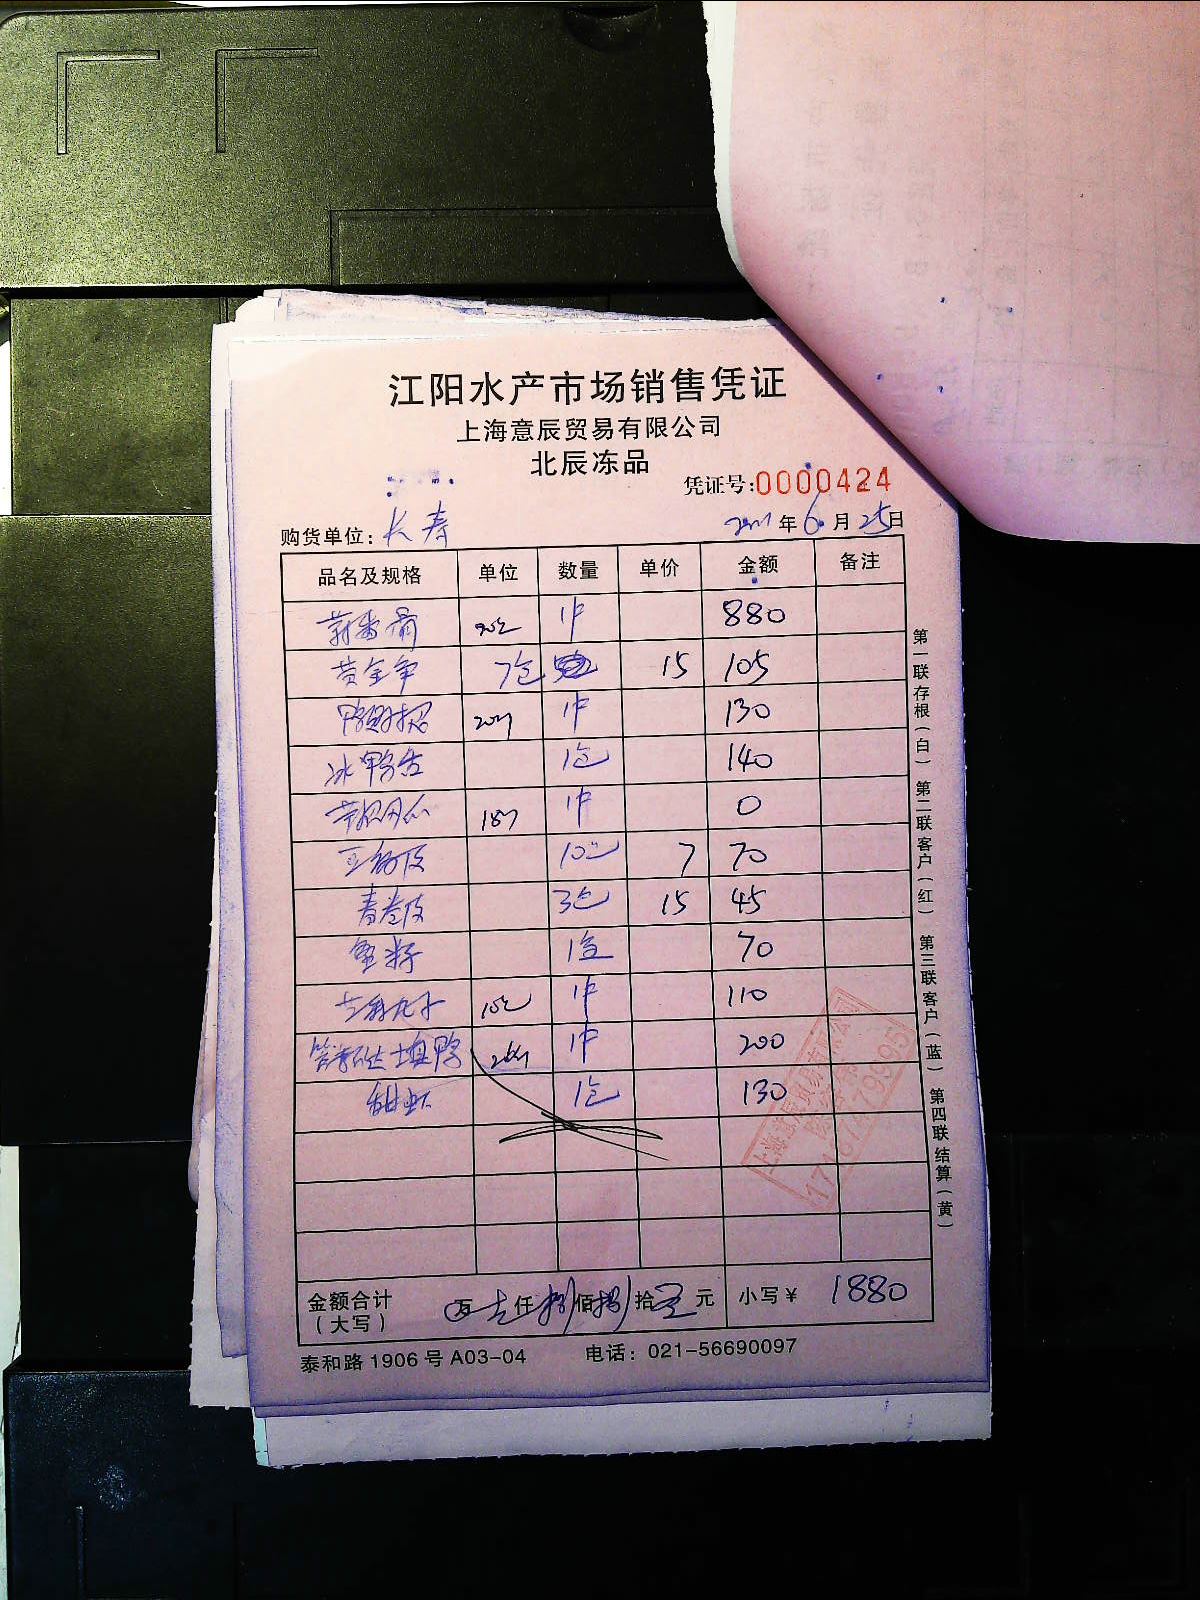 江阳水产市场销售凭证
上海意辰贸易有限公司
北辰冻品
凭证号:0000424
购货单位: 长寿 年 6 月 25 日
品名及规格 单位 数量 单价 金额 备注
1件 880
7包 15 105
1件 130
冰鸭舌 1包 140
1件 0
10包 7 70
春卷皮 3包 15 45
蟹籽 1盒 70
1件 110
填鸭 1件 200
甜虾 1包 130
金额合计
(大写) 万 仟捌佰捌拾 元 小写¥ 1880
泰和路1906号A03-04 电话: 021-56690097
第一联存根(白) 第二联客户(红) 第三联客户(蓝) 第四联结算(黄)
上海意辰贸易有限公司